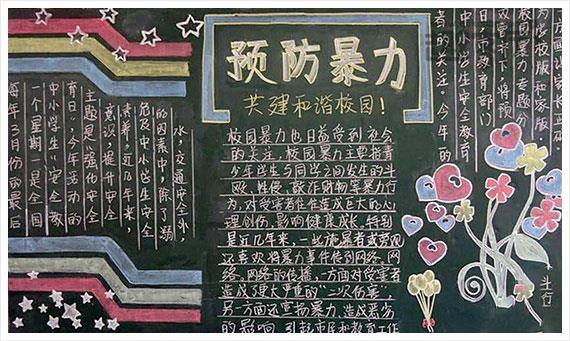 预防暴力
共建和谐校园！
每年3月份的最后
一个星期一是全国
中小学生“安全教
育日”，今年活动的
主题是“强化安全
意识，提升安全
素养。近几年来，
危及中小学生安全
的因素中，除了溺
水，交通安全外，
校园暴力也日益受到社会
的关注。校园暴力主要指青
少年学生与同学之间发生的斗
殴、性侵、敲诈财物等暴力行
为，对受害者往往造成巨大的心
理创伤，影响健康成长。特别
是近几年来，一些施暴者或旁观
还喜欢将暴力事件传到网络。网
络。网络的传播，一方面对受害者
造成强大严重的“二次伤害”，
另一方面还宣扬暴力、造成恶劣
的影响，引起市民和教育工作
者的关注。今年的
中小学生安全教育
日，市教育部门
双管齐下，将预
校园暴力专题分
为学校版和家版